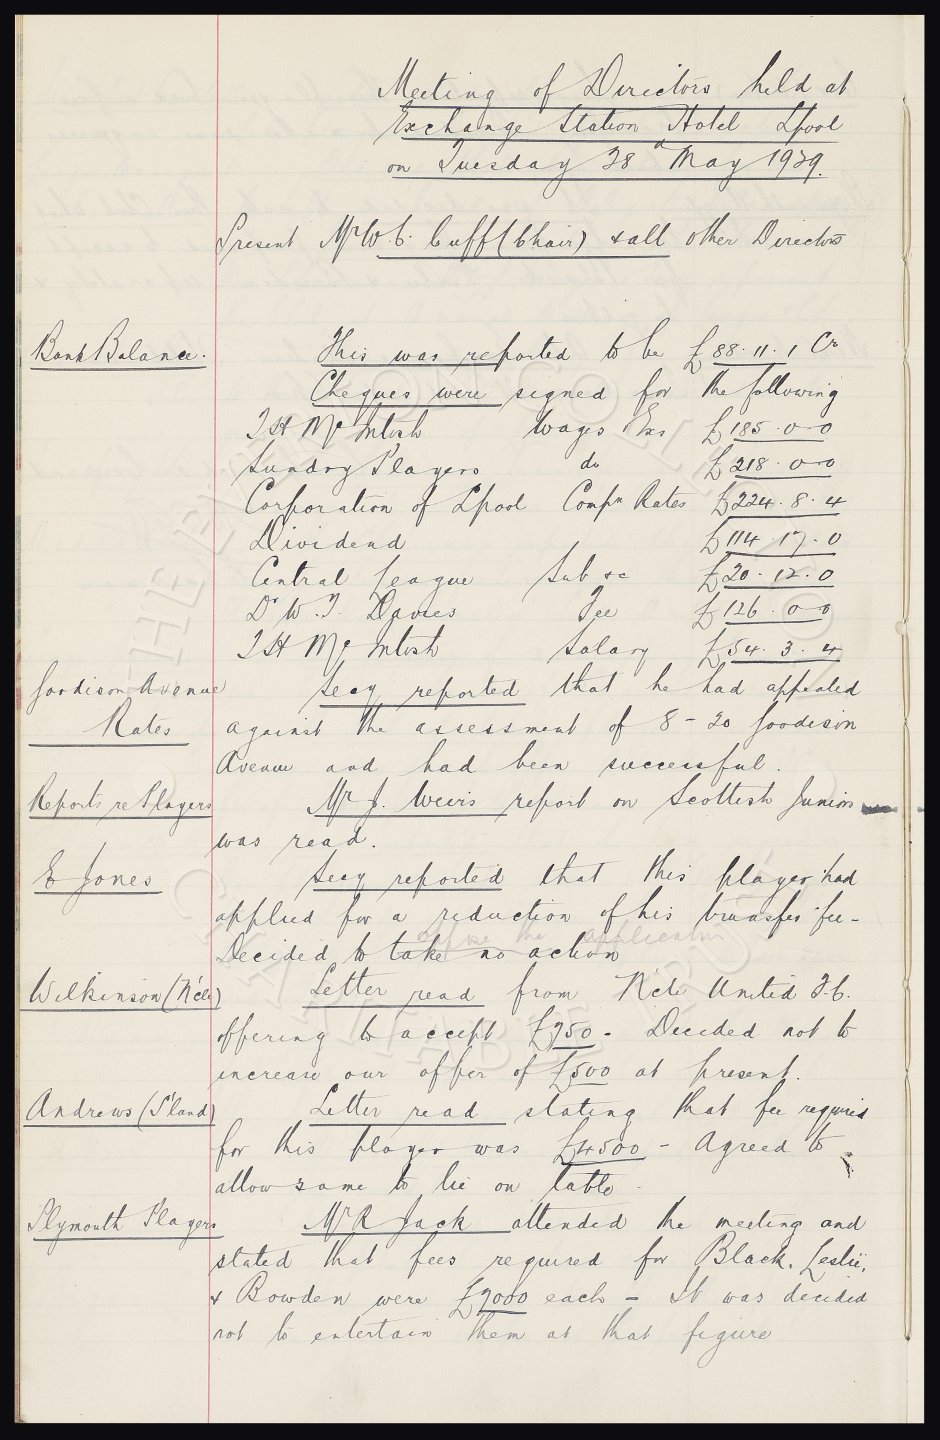 Meeting of Directors held at
Exchange Station Hotel Lpool
on Tuesday 28th May 1929.
Present Mr W.C. Cuff (Chair) & all other Directors
Bank Balance. This was reported to be £88.11.1 Cr
Cheques were signed for the following
T H McIntosh Wages Exs £185.0-0
Sundry Players do £218.0-0
Corporation of Lpool Compn Rates £224.8.4
Dividend £114.17.0
Central League Sub &c £20.12.0
Dr W.T. Davies Fee £126.0-0
T H McIntosh Salary £54.3.4
Goodison Avenue Secy reported that he had appealed
Rates against the assessment of 8-20 Goodison
Avenue and had been successful.
Reports re Players Mr J. Weirs report on Scottish Juniors
was read.
E Jones Secy reported that this player had
applied for a reduction of his transfer fee-
oppose the application
Decided to take no action
Wilkinson (N'cle) Letter read from N'cle United F.C.
offering to accept £750 - Decided not to
increase our offer of £500 at present.
Andrews (S'land) Letter read stating that fee required
for this player was £4500 - Agreed to
allow same to lie on table.
Plymouth Players Mr R Jack attended the meeting and
stated that fees required for Black, Leslie,
& Bowden were £7000 each - It was decided
not to entertain them at that figure
THE EVERTON COLLECTION